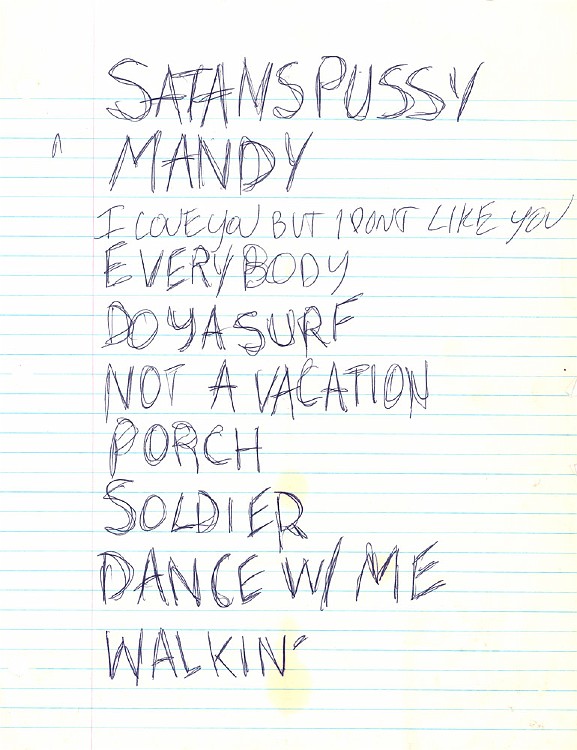 SATANS PUSSY
MANDY
I LOVE YOU BUT I DONT LIKE YOU
EVERYBODY
DO YA SURF
NOT A VACATION
PORCH
SOLDIER
DANCE W/ ME
WALKIN'